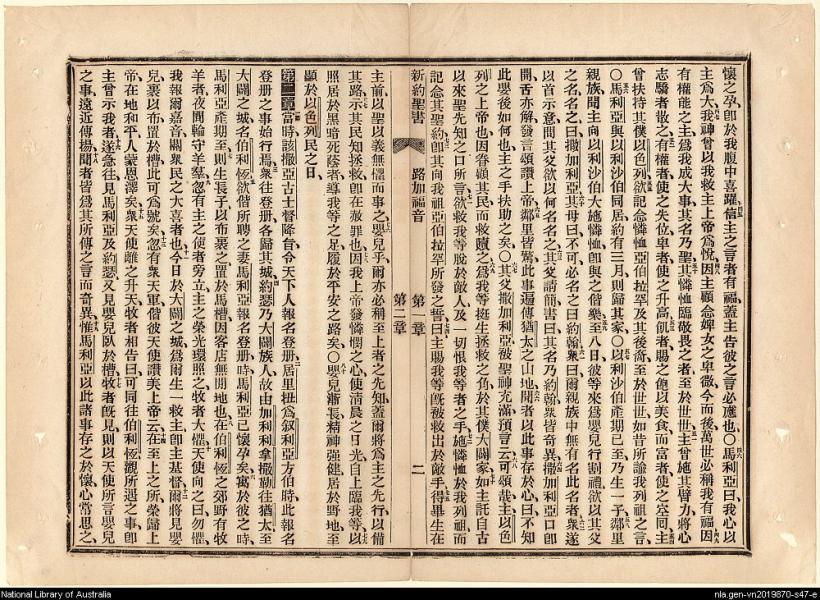 懷之孕、卽於我腹中喜躍、信主之言者有福、蓋主吿彼之言必應也、○馬利亞曰、我心以
主爲大、我神曾以我救主上帝爲悅、因主顧念婢女之卑微、今而後萬世必稱我有福、因
有權能之主、爲我成大事、其名乃聖、其憐恤臨敬畏之者、至於世世、主曾施其臂力、將心
志驕者散之、有權者使之失位、卑者使之升高、飢者賜之飽以美食、而富者使之空囘、主
曾扶持其僕以色列、欲記念憐恤亞伯拉罕及其後裔、至於世世、如昔所諭我列祖之言、
○馬利亞與以利沙伯同居約有三月、則歸其家、○以利沙伯產期已至、乃生一子、鄰里
親族聞主向以利沙伯大施憐恤、卽與之偕樂、至八日、彼等來爲嬰兒行割禮、欲以其父
之名名之、曰撒加利亞、其母曰、不可、必名之曰約翰、衆曰、爾親族中無有名此名者、衆遂
以首示意、問其父欲以何名名之、其父請簡、書曰、其名乃約翰、衆皆奇異、撒加利亞口卽
開、舌亦解、發言頌讚上帝、鄰里皆駭、此事遍傳猶太之山地、聞者以此事存於心、曰、不知
此嬰後如何也、主之手扶助之矣、○其父撒加利亞被聖神充滿、預言云、可頌哉、主以色
列之上帝也、因眷顧其民而救贖之、爲我等挺生拯救之角、於其僕大闢家、如主託自古
以來聖先知之口所言、欲救我等脫於敵人、及一切恨我等者之手、施憐恤於我列祖、而
記念其聖約、卽其向我祖亞伯拉罕所發之誓、曰、主賜我等旣被救出於敵手、得畢生在
新約聖書　路加福音　第一章　第二章　二
主前、以聖以義、無懼而事之、嬰兒乎、爾亦必稱至上者之先知、蓋爾將爲主之先行、以備
其路、示其民知拯救卽在赦罪也、因我上帝發憐憫之心、使淸晨之日光、自上臨我等、以
照居於黑暗死蔭者、導我等之足、履於平安之路矣、○嬰兒漸長、精神强健、居於野地、至
顯於以色列民之日、
第二章　當時該撒亞古士督降詔、令天下人報名登册、居里扭爲叙利亞方伯時、此報名
登册之事始行焉、衆往登册、各歸其城、約瑟乃大闢族人、故由加利利拿撒勒往猶太、至
大闢之城、名伯利恆、欲偕所聘之妻馬利亞報名登册、時馬利亞已懷孕矣、寓於彼之時、
馬利亞產期至、則生長子、以布裹之、置於馬槽、因客店無閒地也、在伯利恆之郊、野有牧
羊者、夜間輪守羊羣、忽有主之使者旁立、主之榮光環照之、牧者大懼、天使向之曰、勿懼、
我報爾嘉音、關衆民之大喜者也、今日於大闢之城、爲爾生一救主、卽主基督、爾將見嬰
兒裹以布、置於槽、此可爲號矣、忽有衆天軍偕彼天使讚美上帝、云、在至上之所、榮歸上
帝、在地和平、人蒙恩澤矣、衆天使離之升天、牧者相吿曰、可同往伯利恆、觀所遇之事、卽
主曾示我者、遂急往、見馬利亞及約瑟、又見嬰兒臥於槽、牧者旣見、則以天使所言嬰兒
之事、遠近傳揚、聞者皆爲其所傳之言而奇異、惟馬利亞以此諸事存之於懷、心常思之、
National Library of Australia
nla.gen-vn2019870-s47-e